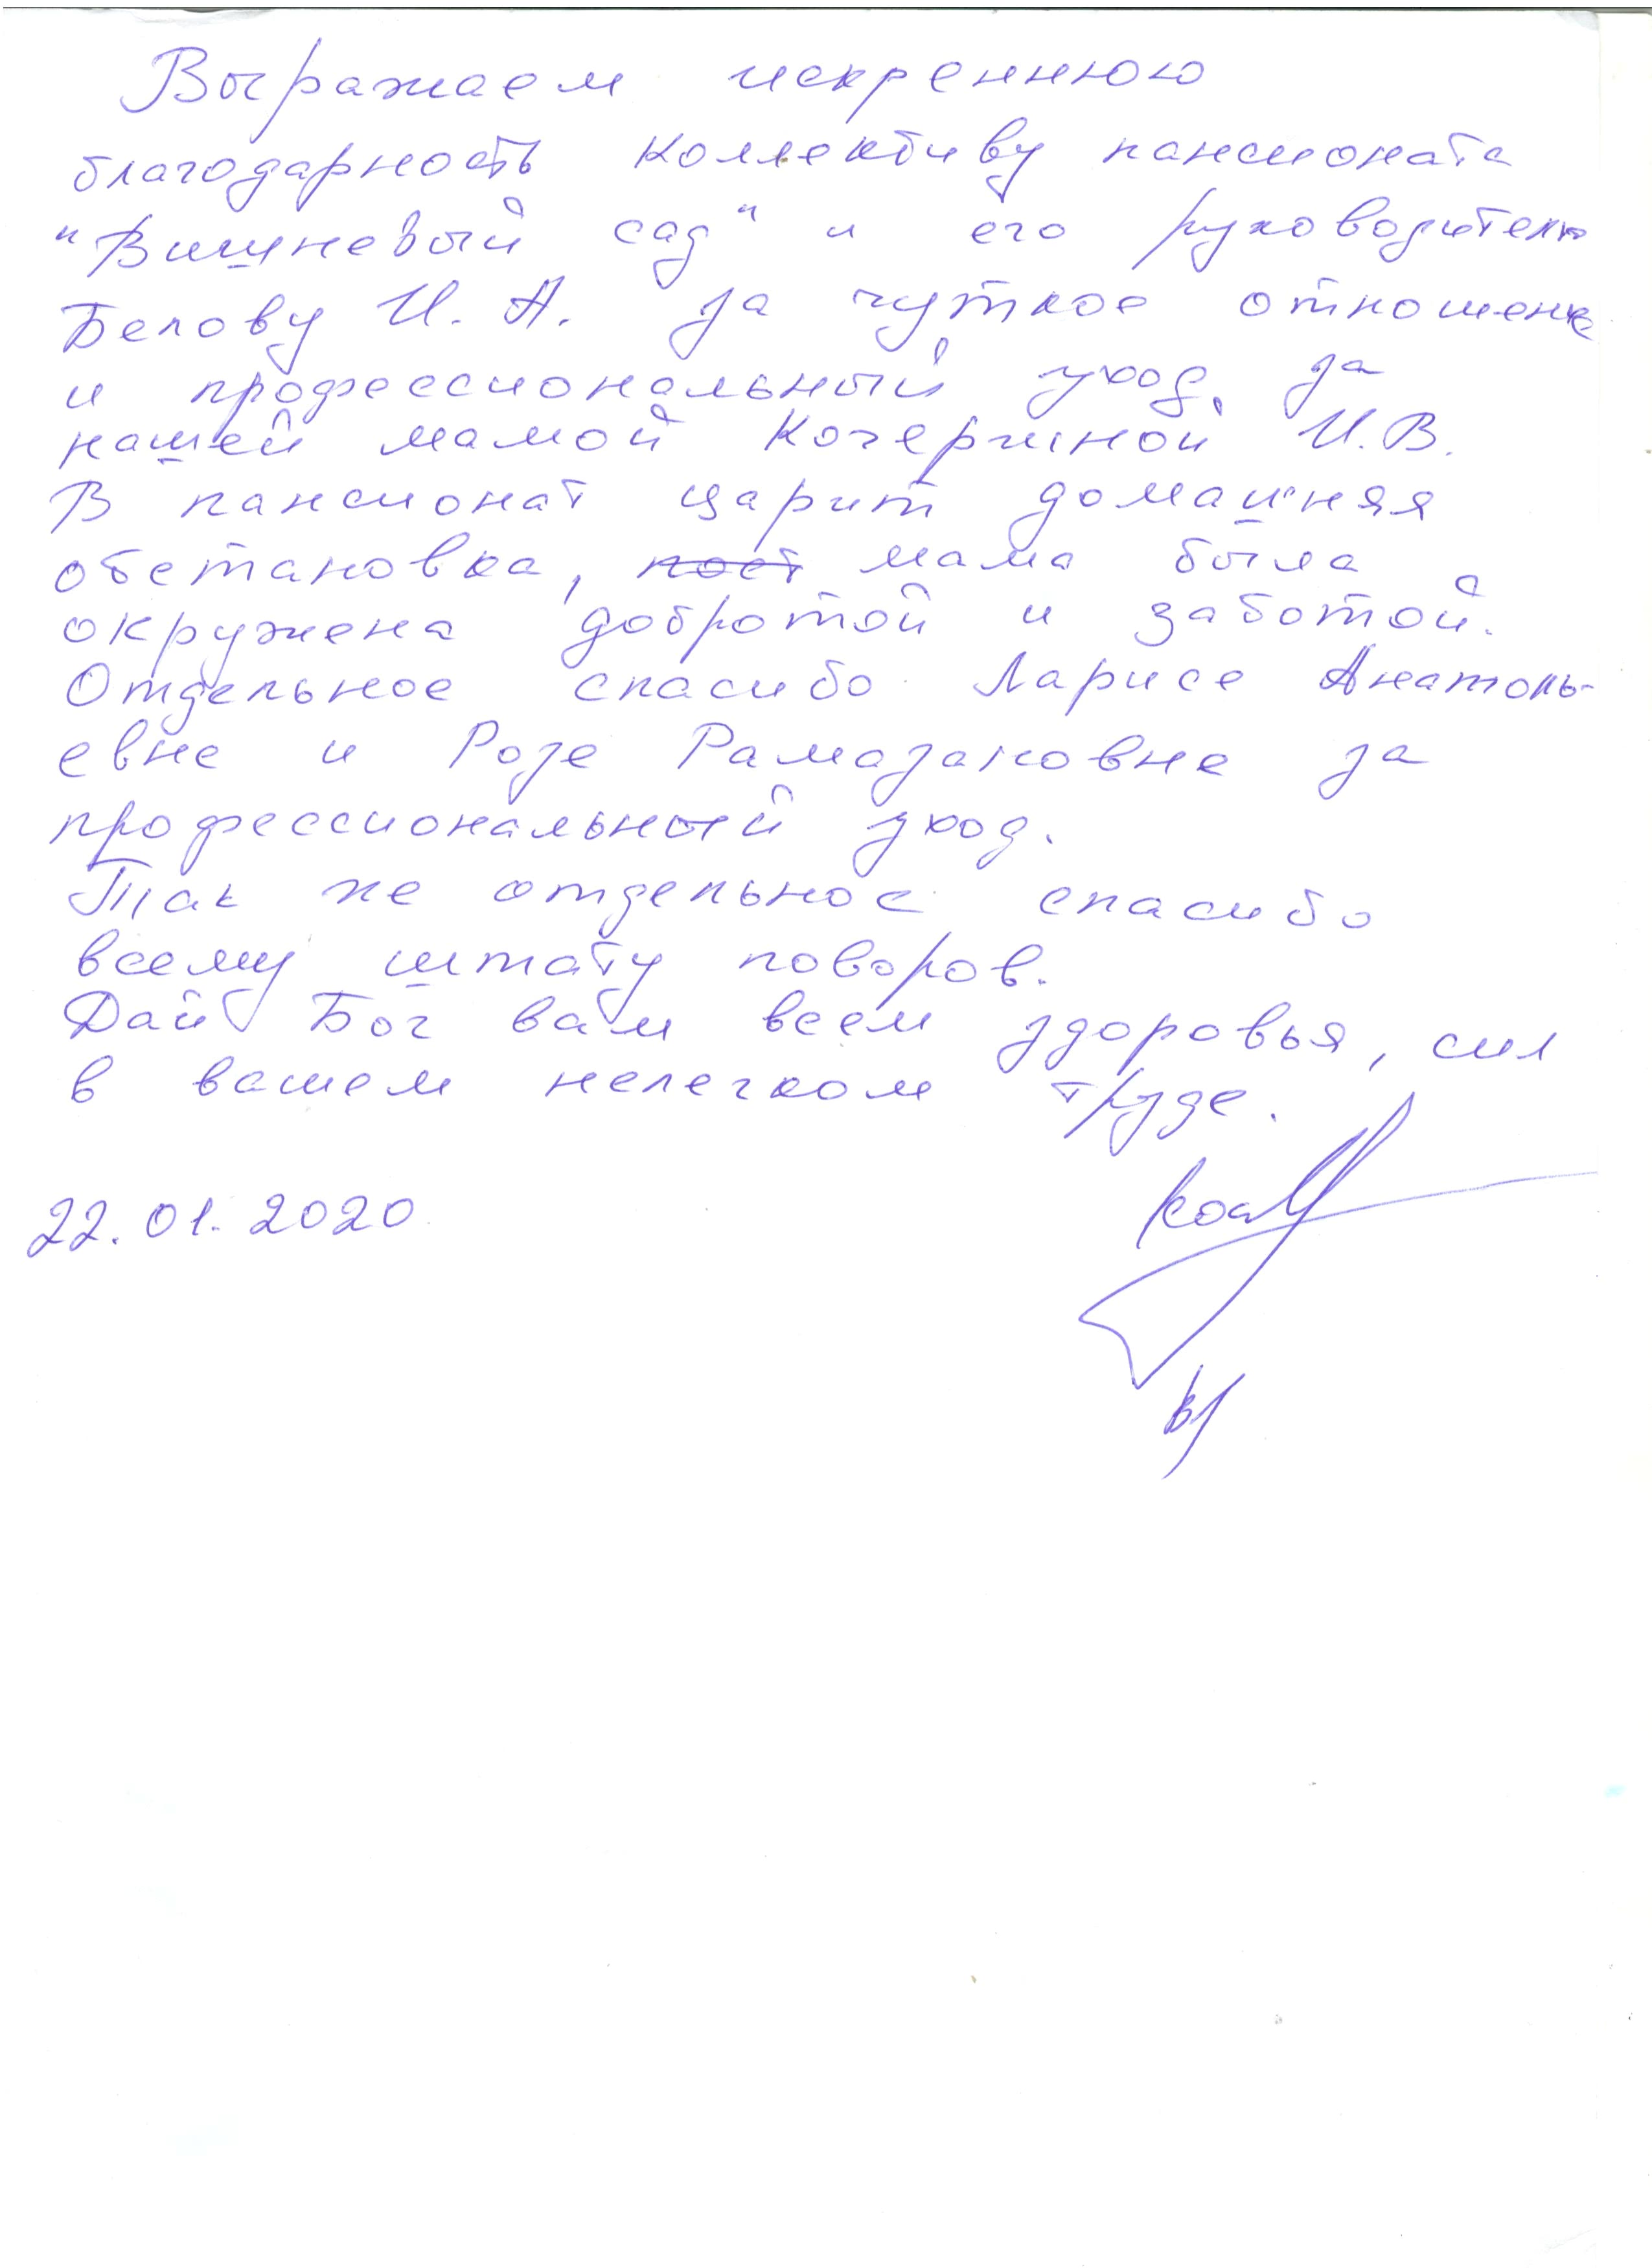 Выражаем искреннюю
благодарность коллективу пансионата
"Вишневый сад" и его руководителю
Белову И. А. за чуткое отношение
и профессиональный уход, за
нашей мамой Кочергиной И.В.
В пансионат царит домашняя
обстановка, пост мама была
окружена добротой и заботой.
Отдельное спасибо Ларисе Анатоль-
евне и Розе Рамазановне за
профессиональный уход.
Так же отдельное спасибо
всему штату поворов.
Дай Бог вам всем здоровья, сил
в вашем нелегком труде.
22.01.2020